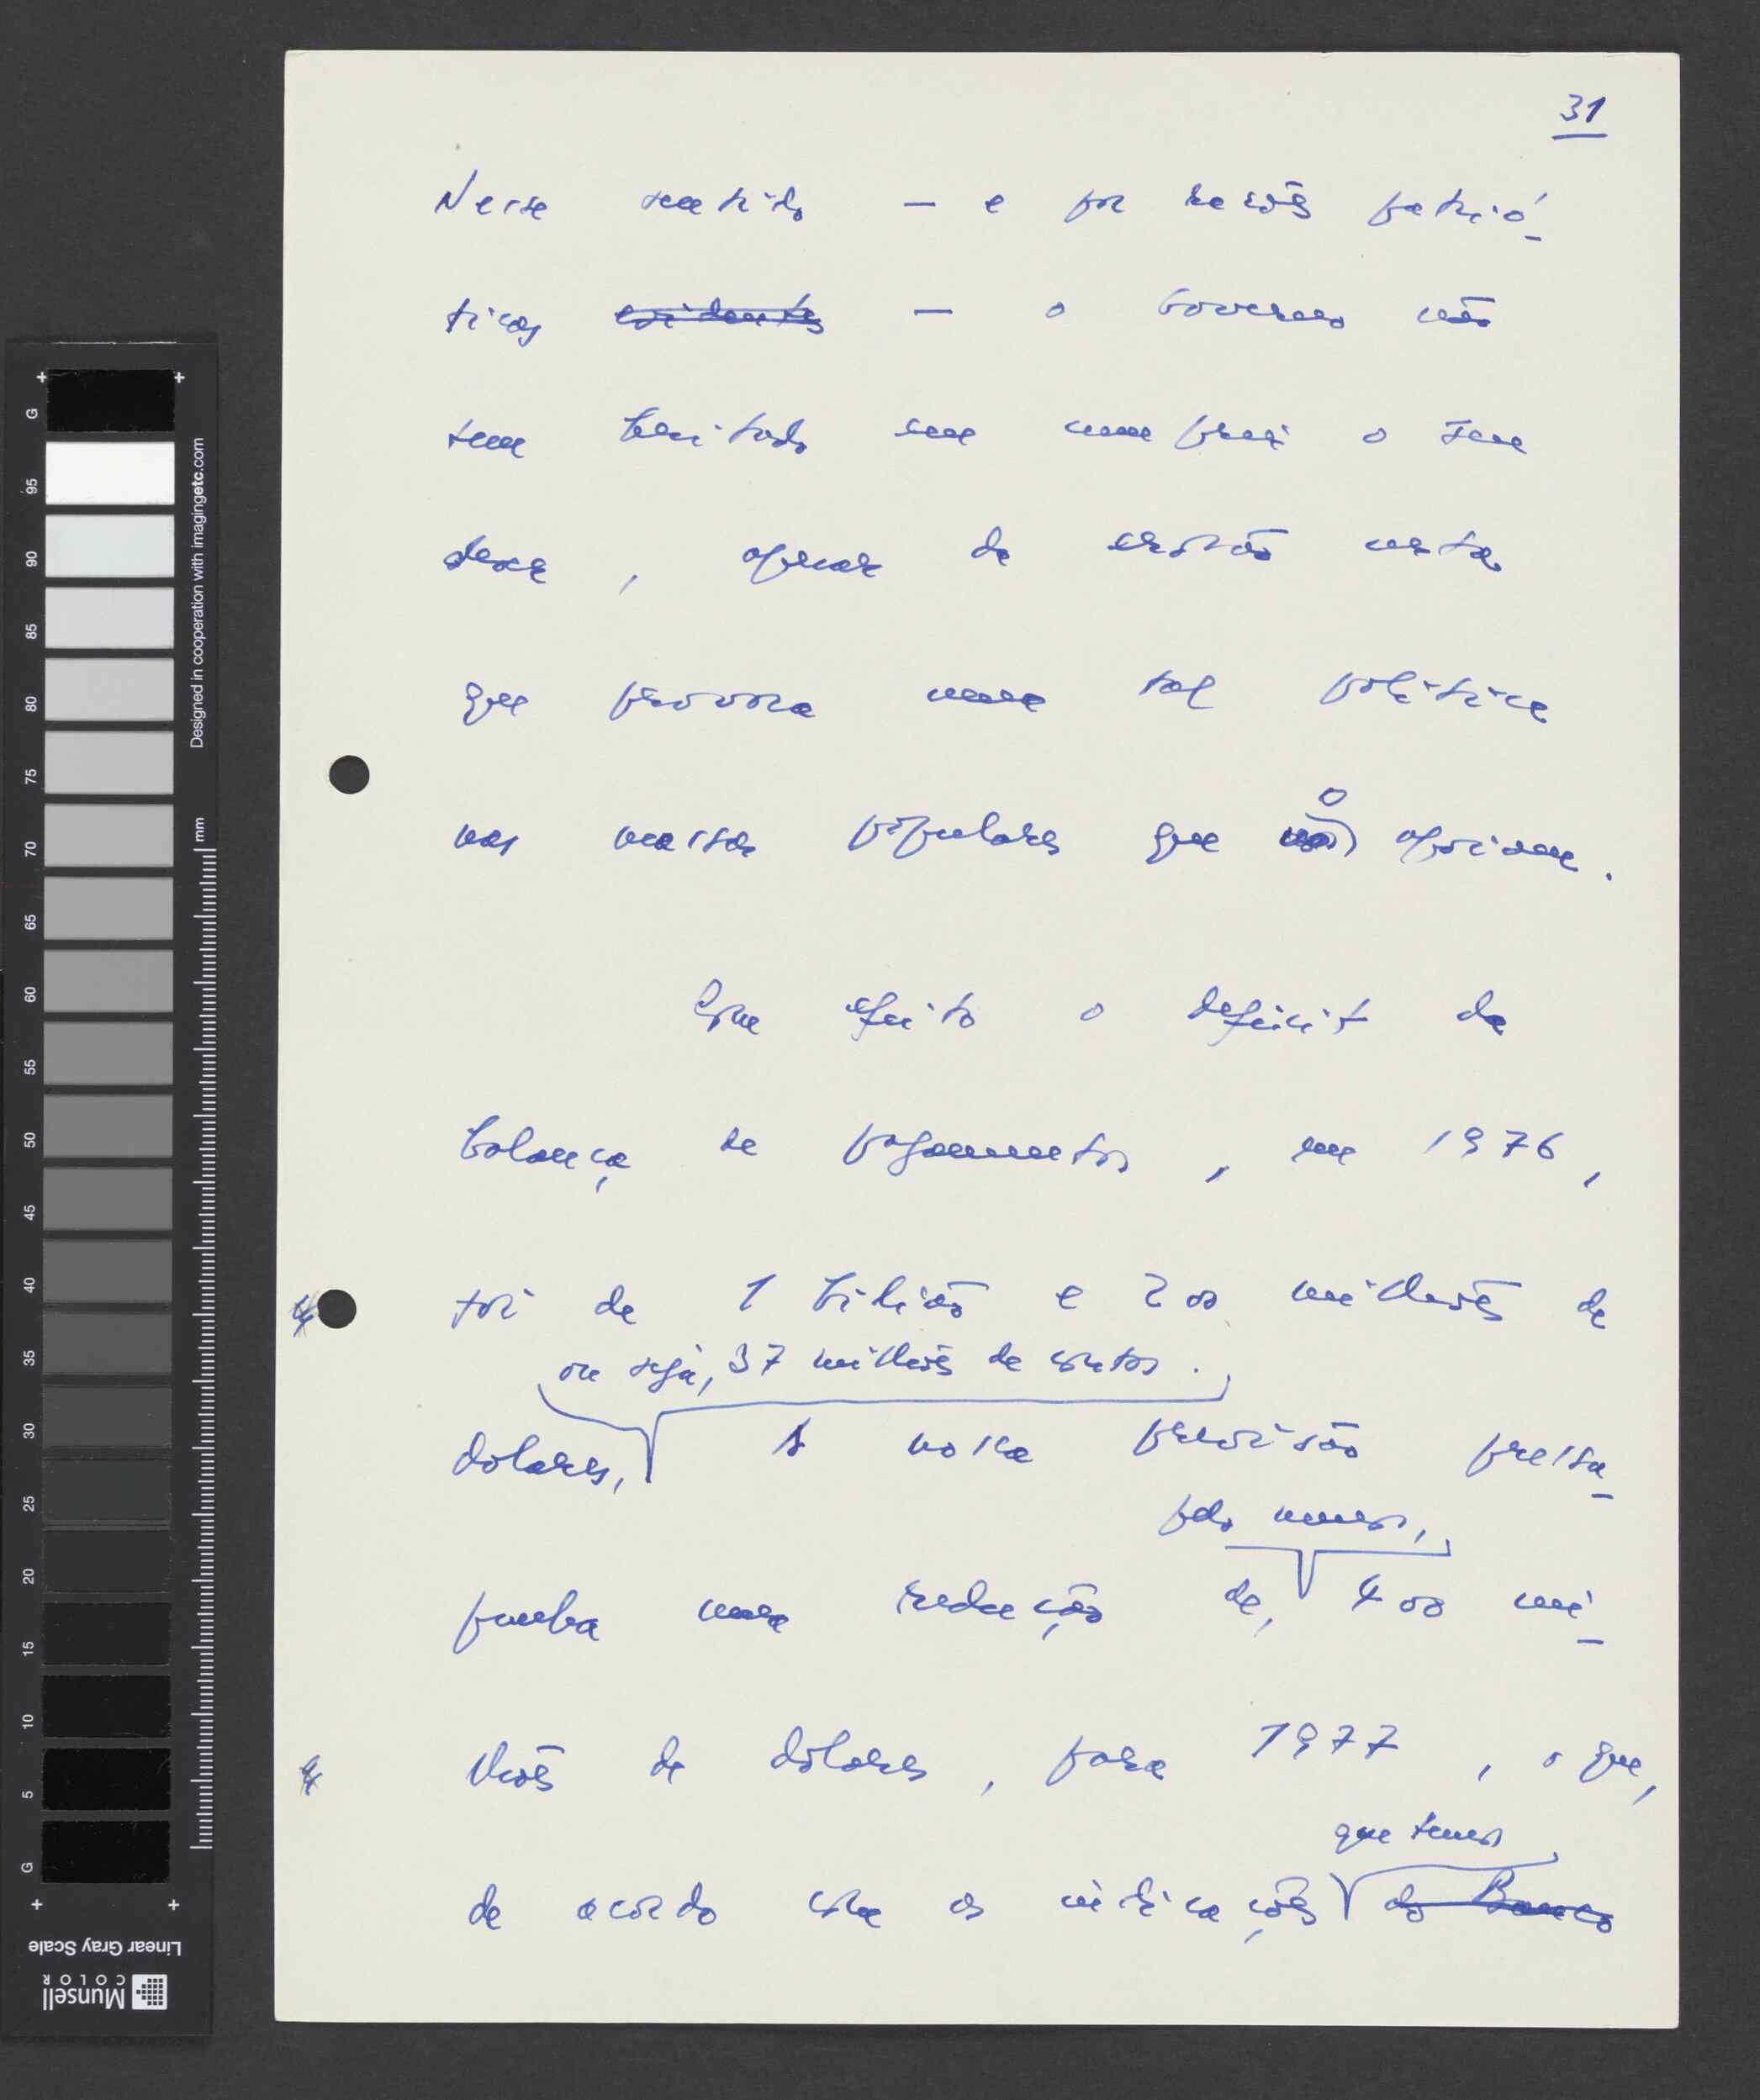 31
Nesse sentido — e por razões patrió-
ticas evidentes — o Governo não
tem hesitado em cumprir o seu
dever, apesar da erosão certa
que provoca uma tal política
nas massas populares que o apoiam.
Com efeito o deficit da
balança de pagamentos, em 1976,
foi de 1 bilião e 200 milhões de
ou seja, 37 milhões de contos.
dolares, A nossa previsão pressu-
pelo menos,
punha uma redução de, 400 mi-
lhões de dólares, para 1977, o que,
que temos
de acordo com as indicações do Banco
G
95
90
85
80
75
70
65
60
55
50
45
40
35
30
25
20
15
10
5
G
mm
Designed in cooperation with imagingetc.com
Linear Gray Scale
Munsell
COLOR